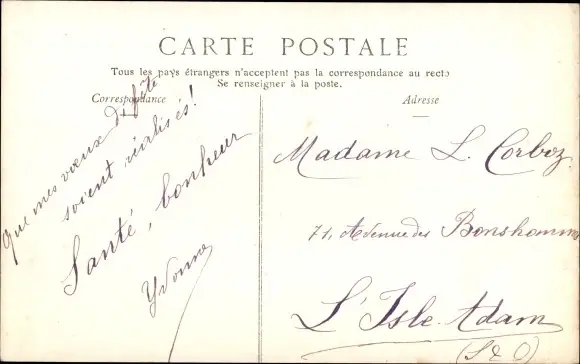 CARTE POSTALE
Tous les pays étrangers n'acceptent pas la correspondance au recto
Se renseigner à la poste.
Correspondance
Adresse
Que mes vœux de fête
soient réalisés!
Santé, bonheur
Yvonne
Madame L. Corboz
71, Avenue des Bonshommes
L'Isle-Adam
(S & O)